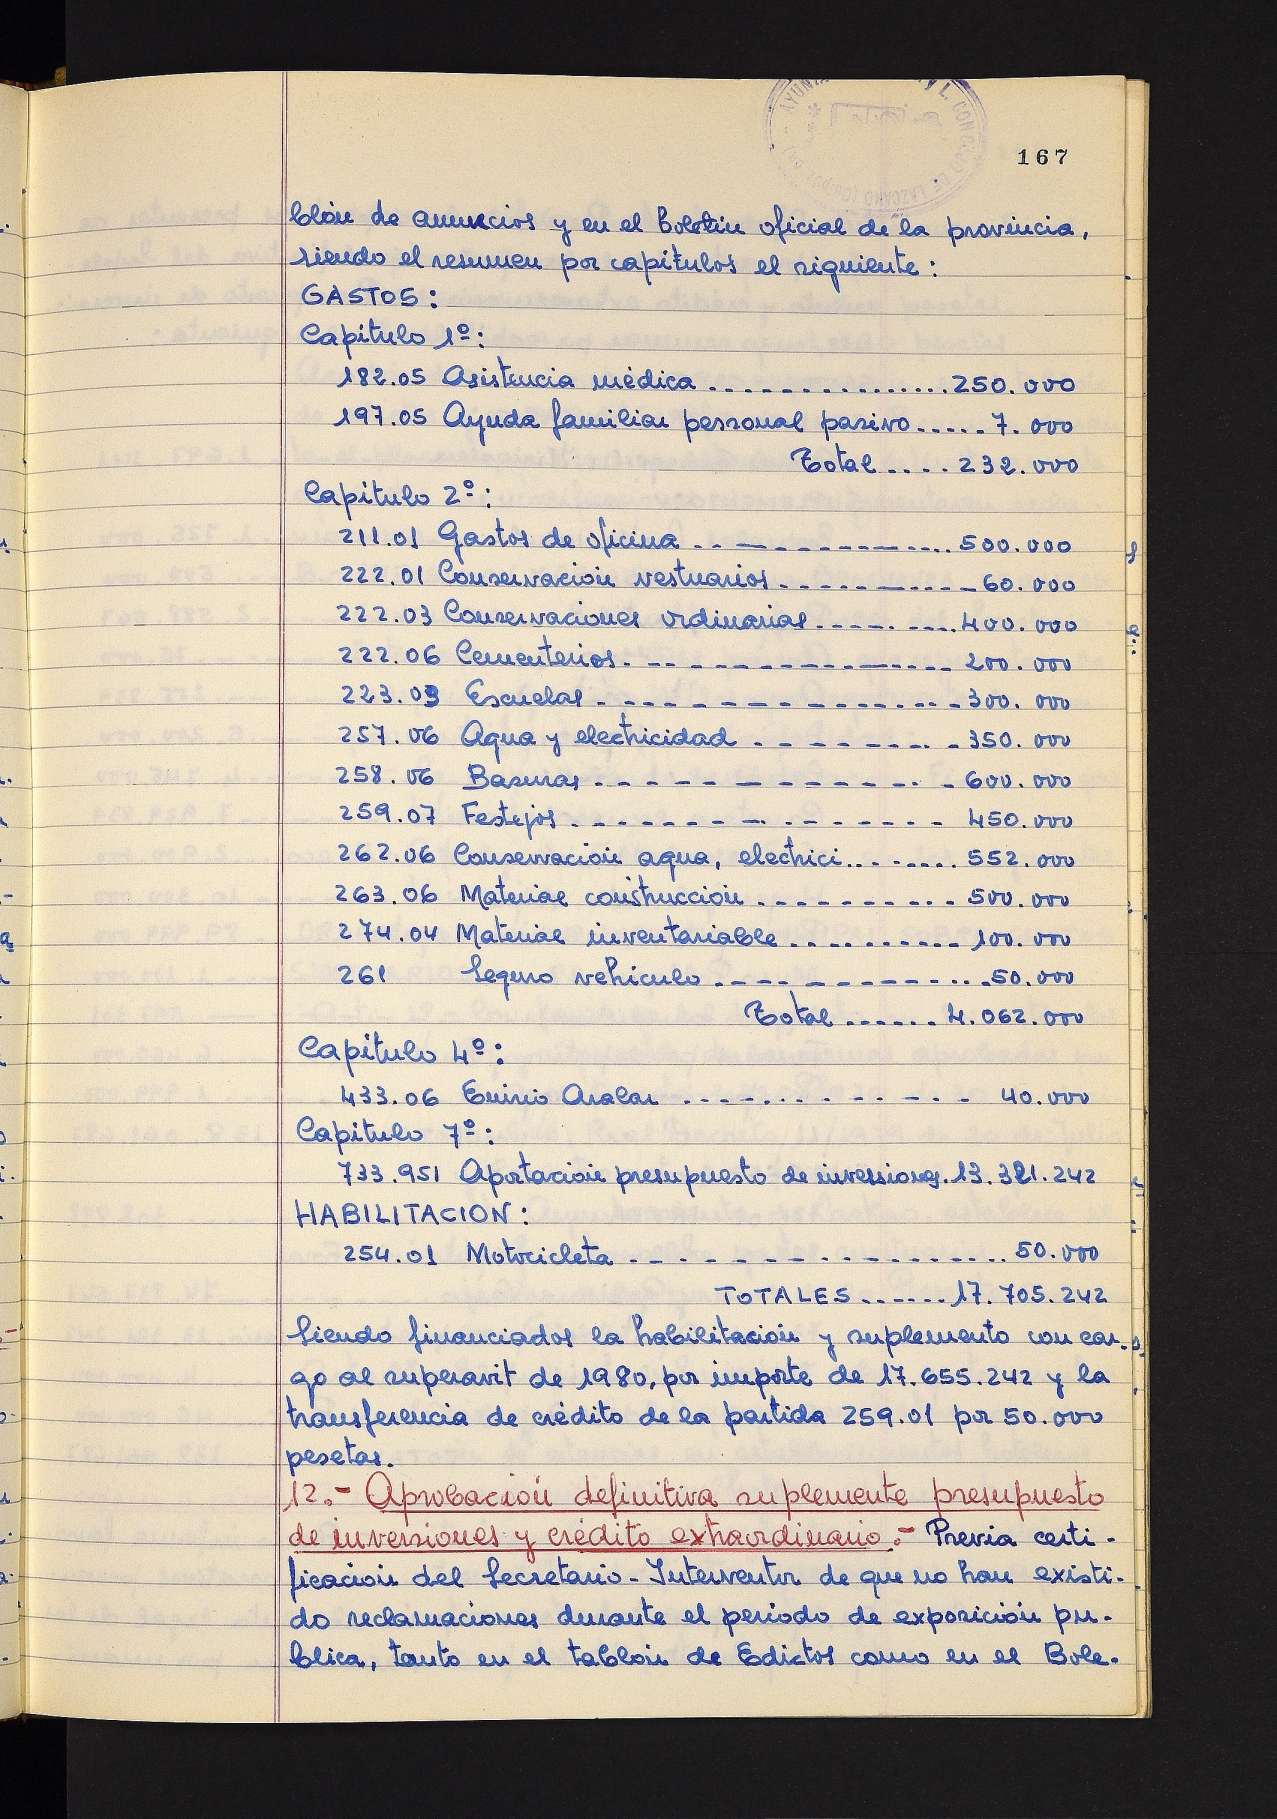 167
blón de anuncios y en el Boletín oficial de la provincia,
siendo el resumen por capítulos el siguiente:
GASTOS:
Capítulo 1º:
182.05 Asistencia médica ................ 250.000
197.05 Ayuda familiar personal pasivo ..... 7.000
Total .... 232.000
Capítulo 2º:
211.01 Gastos de oficina .. - - - - - - - .... 500.000
222.01 Conservación vestuarios - - - - - - - - 60.000
222.03 Conservaciones ordinarias - - - - - .... 400.000
222.06 Cementerios - - - - - - - - - - - - - 200.000
223.03 Escuelas - - - - - - - - - - - - - - 300.000
257.06 Agua y electricidad - - - - - - - - - 350.000
258.06 Basuras - - - - - - - - - - - - - 600.000
259.07 Festejos - - - - - - - - - - - - - 450.000
262.06 Conservación agua, electrici........ 552.000
263.06 Material construcción - - - - - - - - - 500.000
274.04 Material inventariable .......... 100.000
261 Seguro vehículo - - - - - - - - - ... 50.000
Total ...... 4.062.000
Capítulo 4º:
433.06 Enirio Aralar - - - - - - - - - - 40.000
Capítulo 7º:
733.951 Aportación presupuesto de inversiones. 13.321.242
HABILITACION:
254.01 Motocicleta - - - - - - - - - - - - - .. 50.000
TOTALES ...... 17.705.242
Siendo financiados la habilitación y suplemento con car-
go al superavit de 1980, por importe de 17.655.242 y la
transferencia de crédito de la partida 259.01 por 50.000
pesetas.
12.- Aprobación definitiva suplemente presupuesto
de inversiones y crédito extraordinario.- Previa certi-
ficación del Secretario-Interventor de que no han existi-
do reclamaciones durante el período de exposición pu-
blica, tanto en el tablón de Edictos como en el Bole-